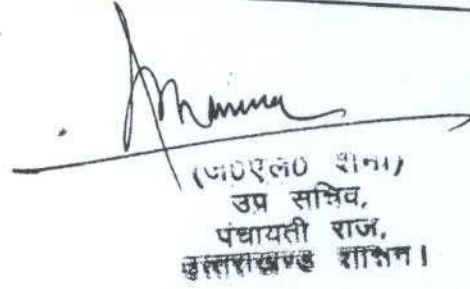 (जे०एल० शर्मा)
उप सचिव,
पंचायती राज,
उत्तराखण्ड शासन।